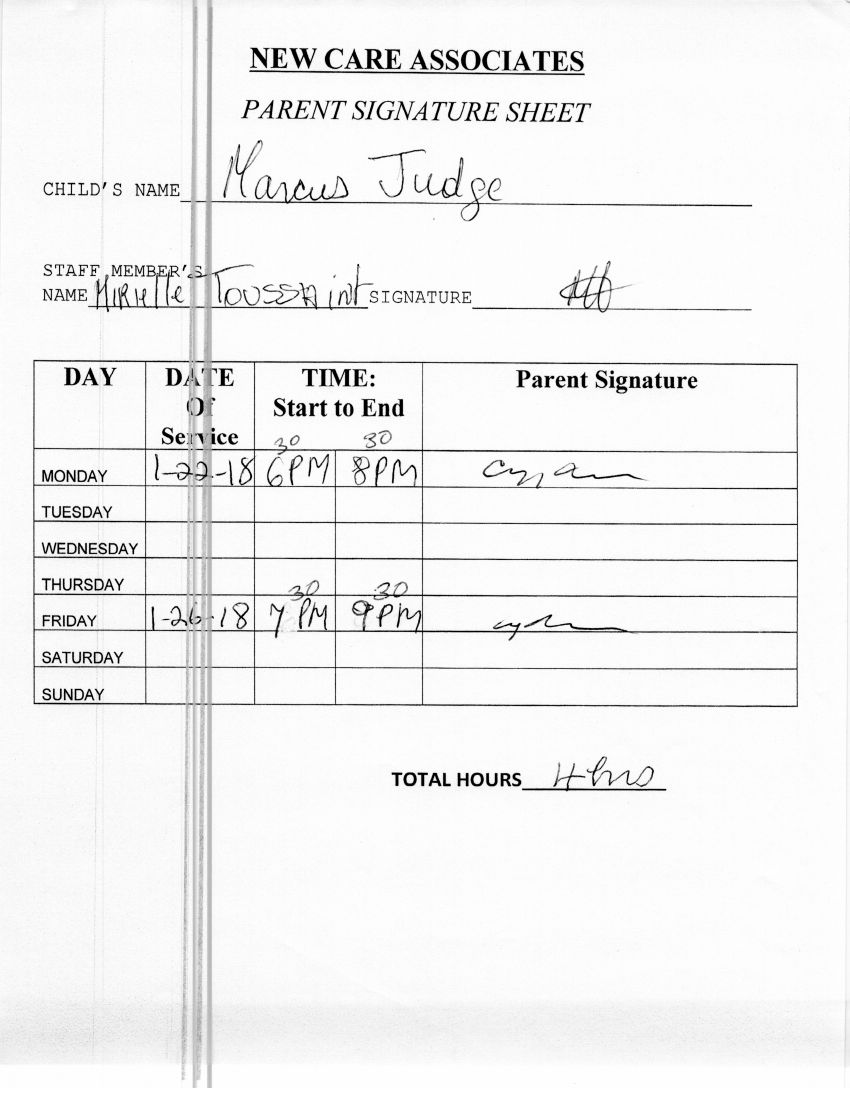 NEW CARE ASSOCIATES
PARENT SIGNATURE SHEET
CHILD'S NAME Marcus Judge
STAFF MEMBER'S
NAME Mirielle Toussaint SIGNATURE
DAY DATE Of Service TIME: Start to End Parent Signature
30 30
MONDAY 1-22-18 6PM 8PM
TUESDAY
WEDNESDAY
THURSDAY
30 30
FRIDAY 1-26-18 7PM 9PM
SATURDAY
SUNDAY
TOTAL HOURS 4hrs